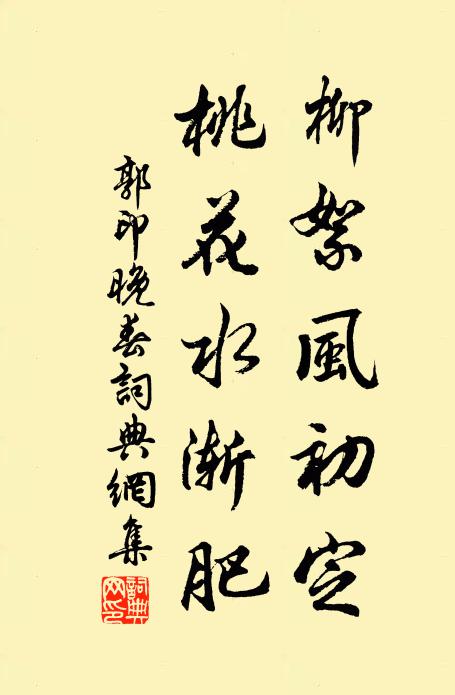 柳絮風初定
桃花水漸肥
郭印晚春詞典網集
詞典網印